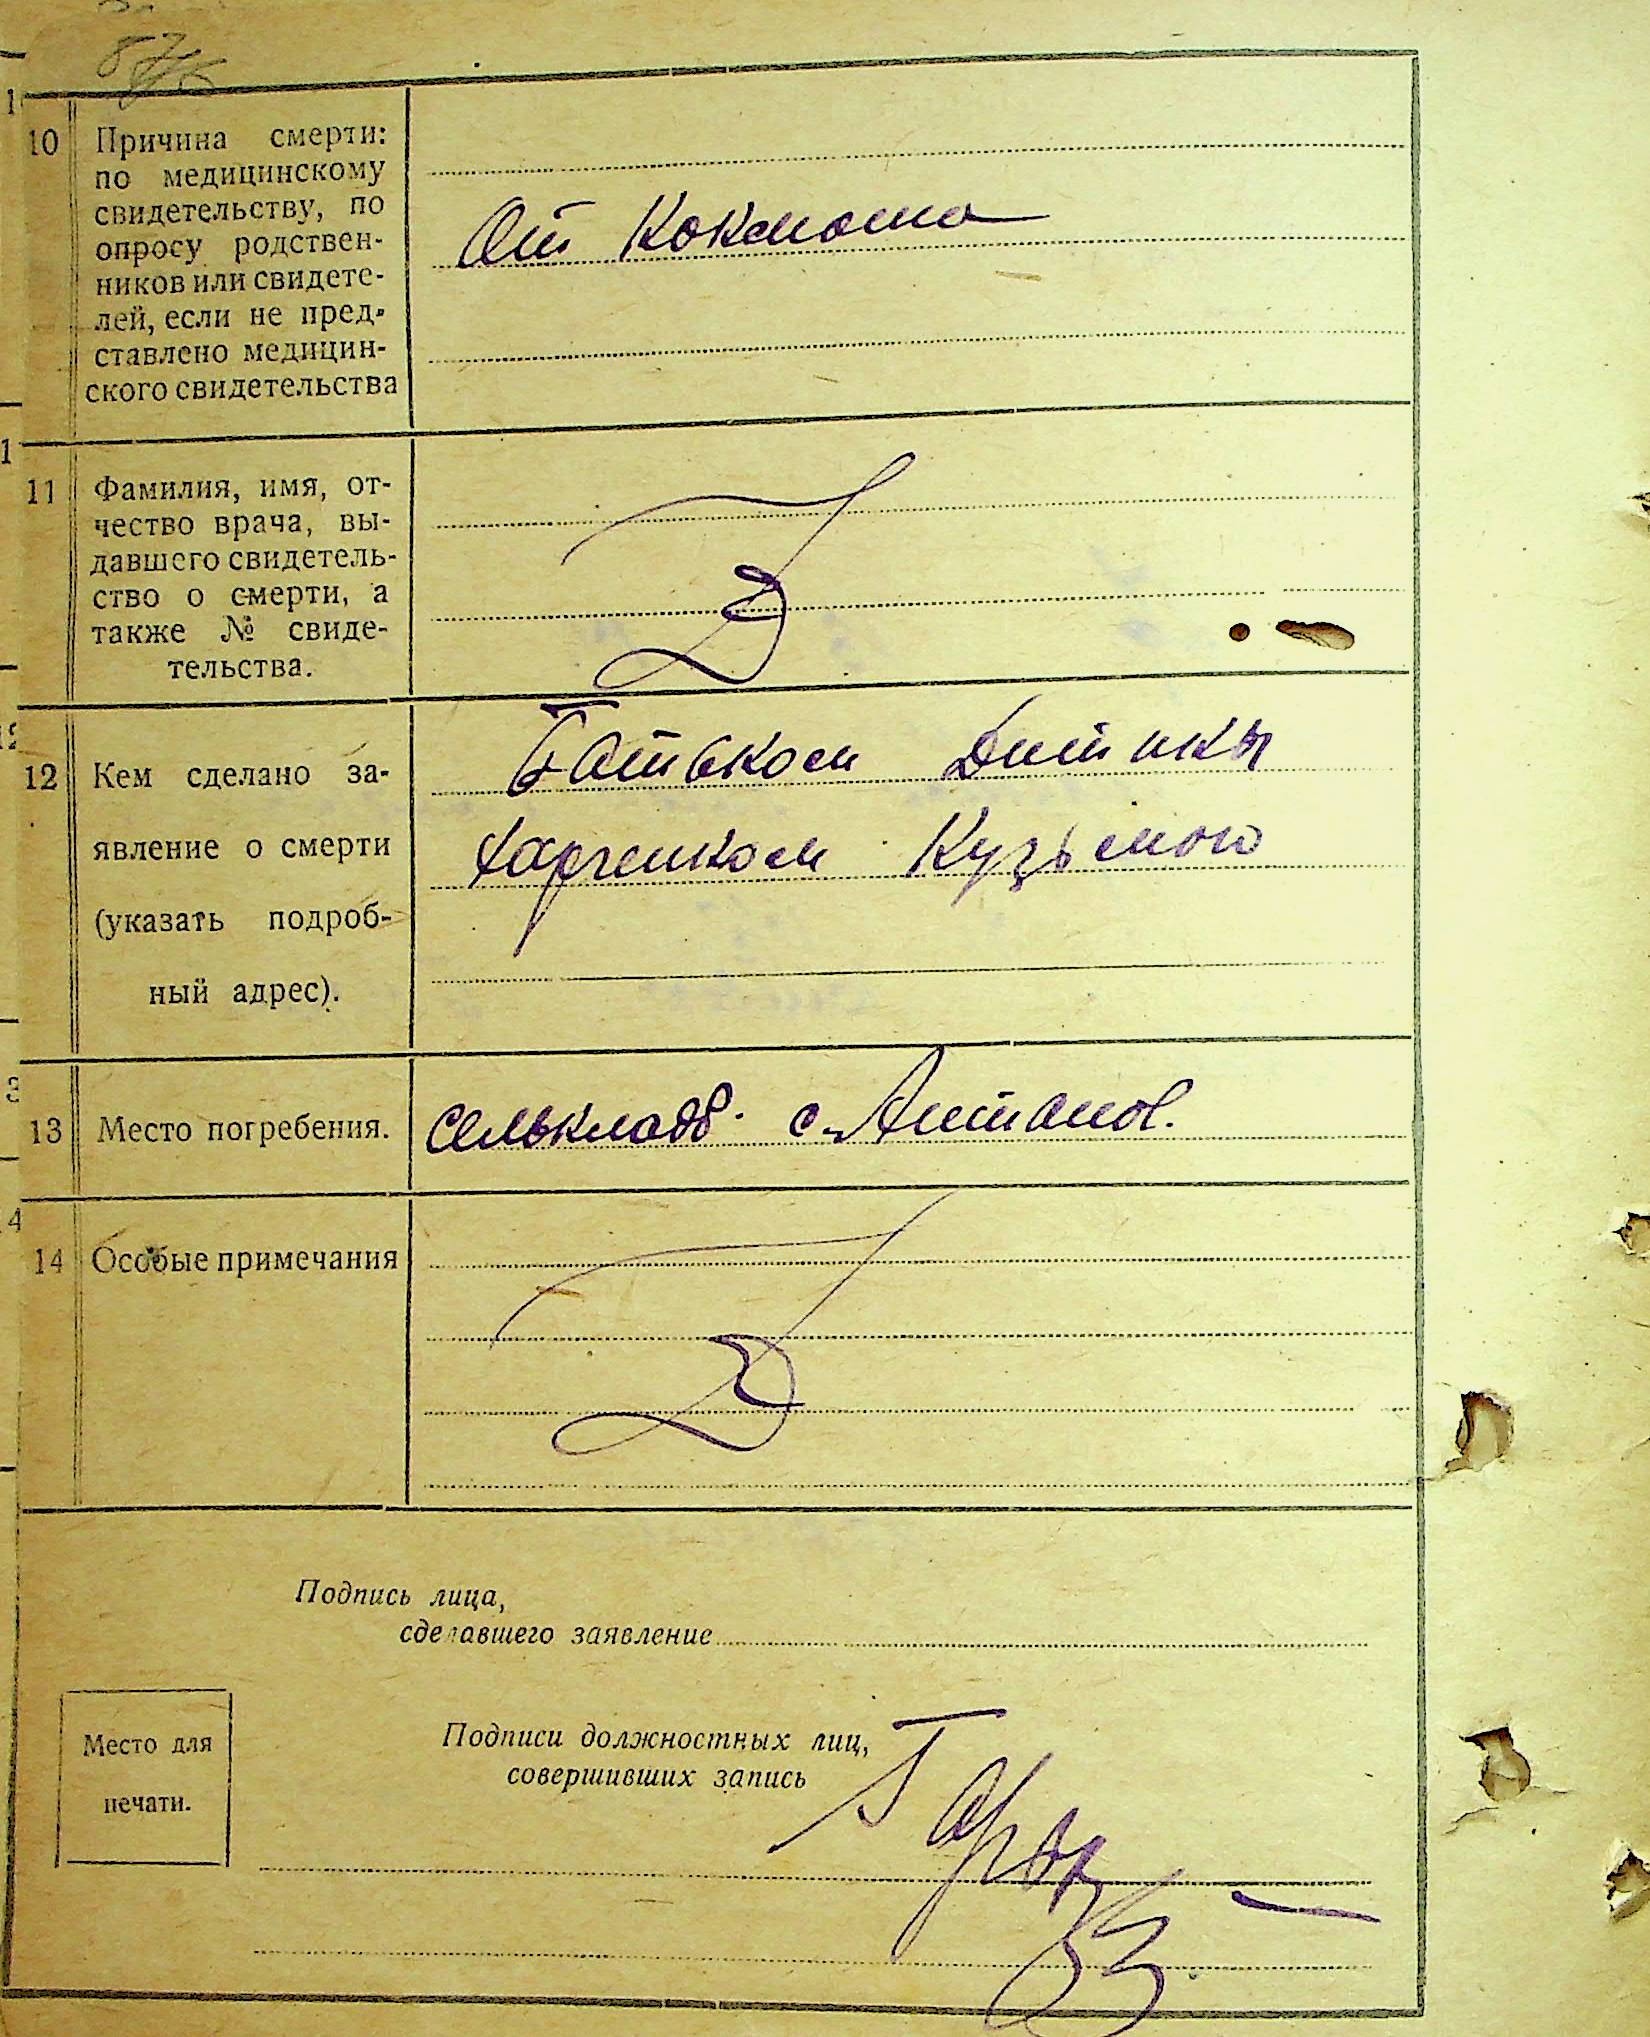 10 Причина смерти:
по медицинскому
свидетельству, по
опросу родствен-
ников или свидете-
лей, если не пред-
ставлено медицин-
ского свидетельства
От Коклюша
11 Фамилия, имя, от-
чество врача, вы-
давшего свидетель-
ство о смерти, а
также № свиде-
тельства.
12 Кем сделано за-
явление о смерти
(указать подроб-
ный адрес).
Батьком Дитини
Харченком Кузьмою
13 Место погребения.
сількладб. с.
14 Особые примечания
Подпись лица,
сделавшего заявление
Место для
печати.
Подписи должностных лиц,
совершивших запись